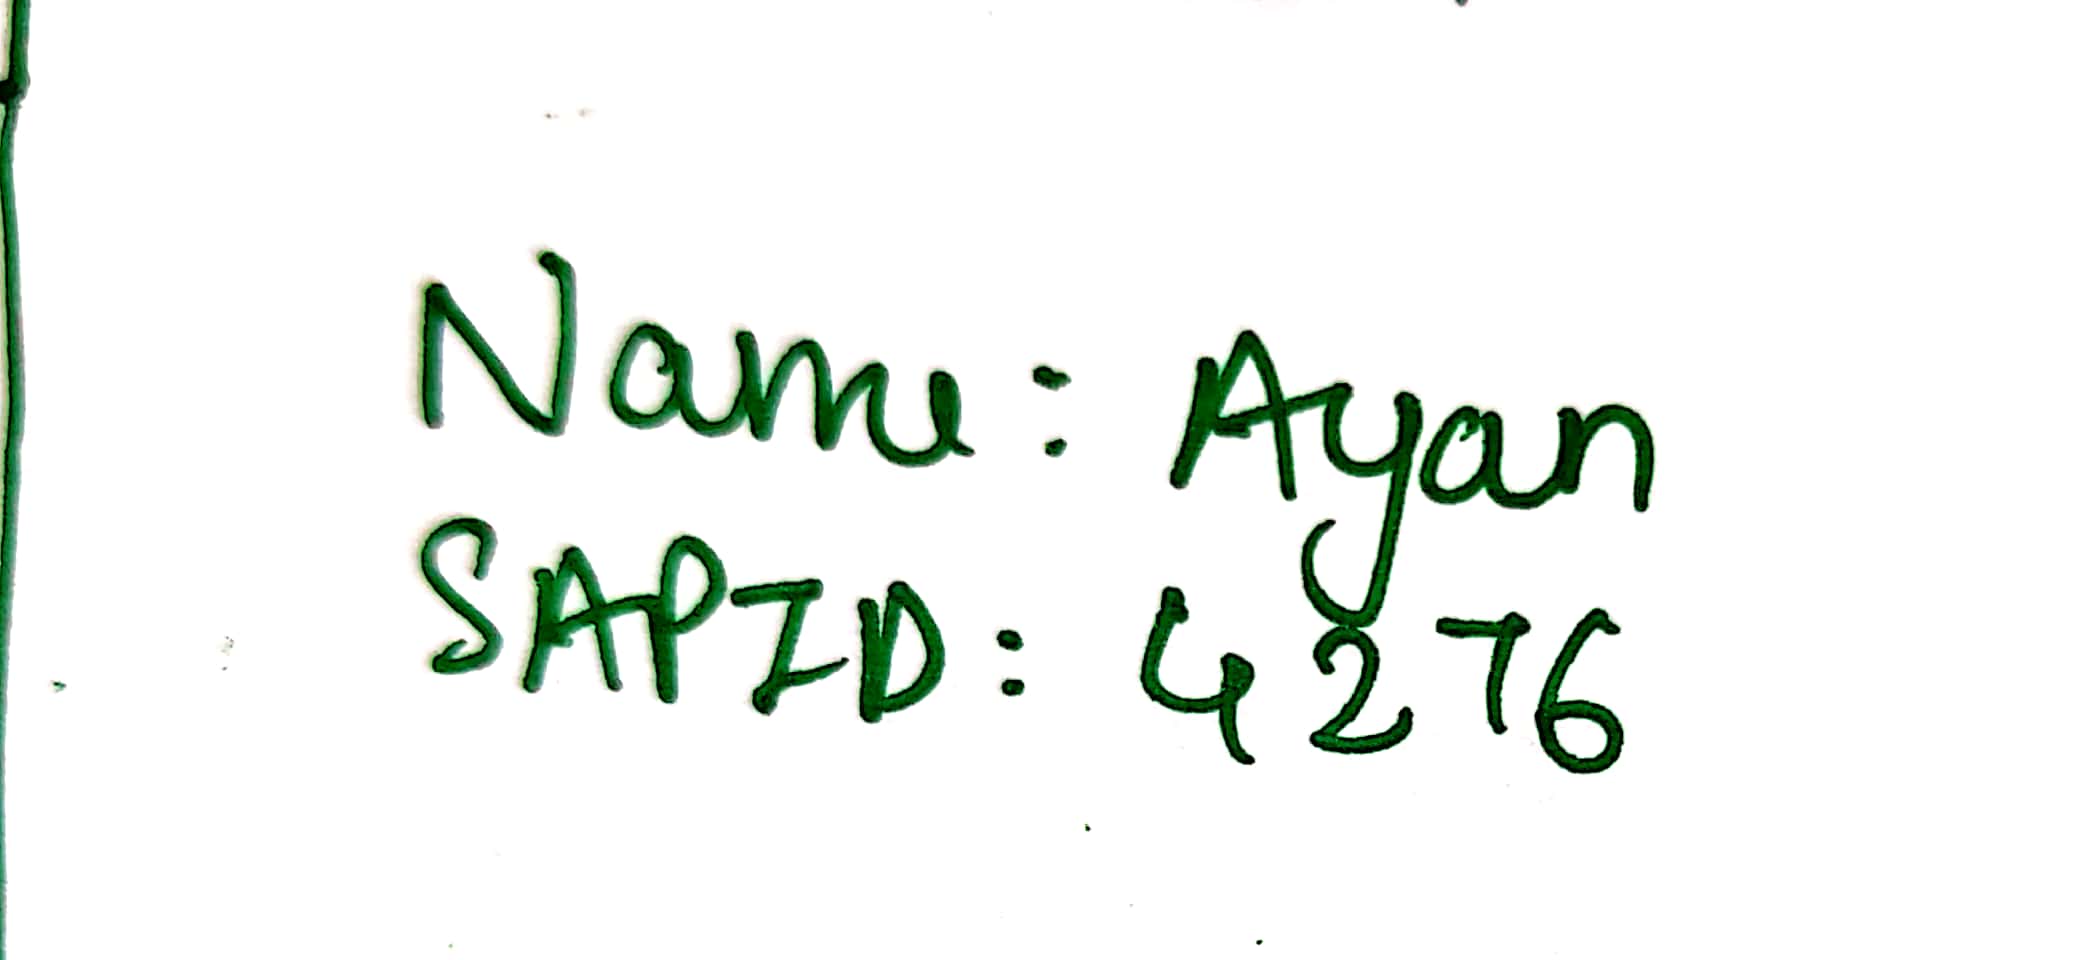 Name: Ayan
SAPID: 4276